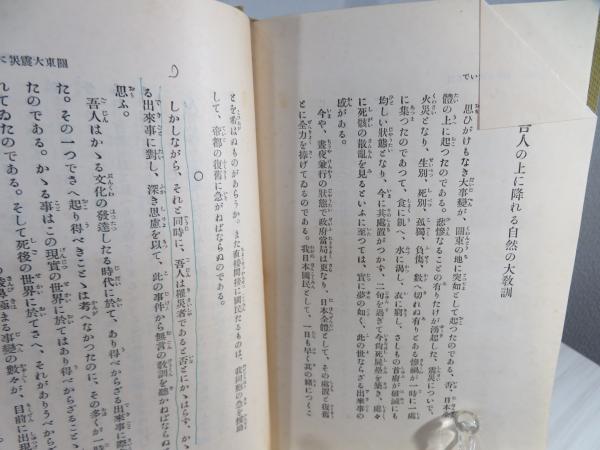 吾人の上に降れる自然の大敎訓
思ひがけもなき大事變が、關東の地に突如として起つたのである、否、日本
體の上に起つたのである。悲慘なることの有りたけが湧起した、震災について、
火災となり、生別、死別、孤獨、負傷、數へ切れぬ有りとある慘禍が一時に一處
に集つたのであつて、食に飢へ、水に渴し、衣に窮し、さしもの首府が
均しい狀態となり、今に其處置がつかず、二旬を過ぎて今尙死屍壘を築き、處々
に死骸の散亂を見るといふに至つては、實に夢の如く、此の世ならざる出來事の
感がある。
今や、晝夜兼行の狀態で政府當局は更なり、日本全體として、その處置と復舊
とに全力を捧げてゐるのである。我日本國民として、一日も早く其の緒につくこ
とを希はぬものがあらうか。また直接間接に國民たるものは、我同胞の急を援助
して、帝都の復舊に急がねばならぬのである。
○
しかしながら、それと同時に、吾人は罹災者であると否とにかゝはらず、か
る出來事に對し、深き思慮を以て、此の事件から無言の敎訓を聽かねばならぬ
思ふ。
吾人はかゝる文化の發達したる時代に於て、あり得べからざる出來事に際
た。その一つでさへ起り得べきことゝは考へなかつたのに、その多くが一時
たのである。かゝる事はこの現實の世界に於てはあり得べからざること
れてゐたのである。そして死後の世界に於てさへ、それがありうべから
極まる事變の數々が、目前に出現
關東大震災
でい